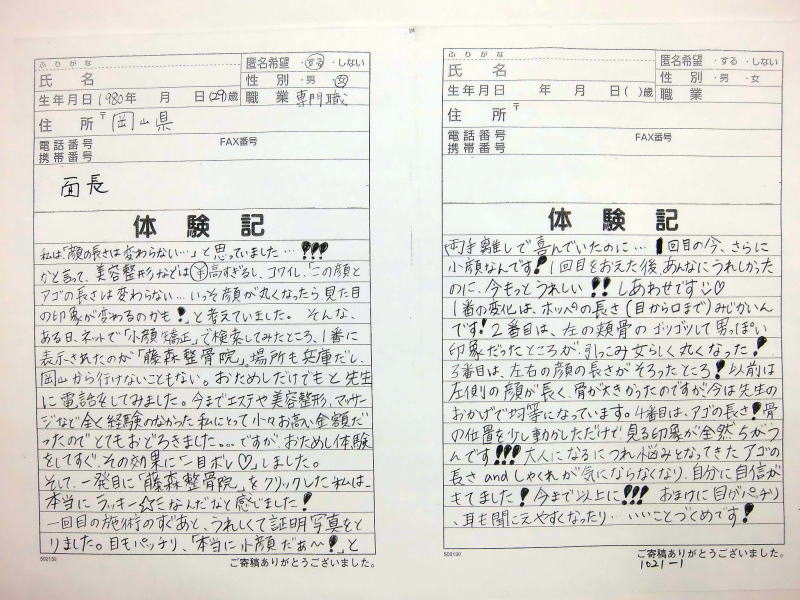 ふりがな
氏名
匿名希望 ・する ・しない
性別 ・男 ・女
生年月日 1980年 月 日(29)歳
職業 専門職
住所 〒 岡山県
電話番号
携帯番号
FAX番号
面長
体験記
私は「顔の長さは変わらない…」と思っていました…!!!
かと言って、美容整形などは¥高すぎるし、コワイし、この顔と
アゴの長さは変わらない…いっそ顔が丸くなったら見た目
の印象が変わるのかも!と考えていました。そんな、
ある日、ネットで「小顔矯正」で検索してみたところ、1番に
表示されたのが「藤森整骨院」。場所も兵庫だし、
岡山から行けないこともない。おためしだけでもと先生
に電話をしてみました。今までエステや美容整形、マッサー
ジなど全く経験のなかった私にとって少々お高い金額だ
ったのでとてもおどろきました。…ですが、おためし体験
をしてすぐ、その効果に一目ボレ♡しました。
そして、一発目に「藤森整骨院」をクリックした私は、
本当にラッキー☆だなと感じました!
一回目の施術のすぐあと、うれしくて証明写真をと
りました。目もパッチリ、「本当に小顔だぁ〜!」と
502130
ご寄稿ありがとうございました。
ふりがな
氏名
匿名希望 ・する ・しない
性別 ・男 ・女
生年月日 年 月 日( )歳
職業
住所 〒
電話番号
携帯番号
FAX番号
体験記
両手離しで喜んでいたのに…1回目の今、さらに
小顔なんです!1回目をおえた後、あんなにうれしかった
のに、今もっとうれしい!!しあわせです♡
1番の変化は、ホッペの長さ(目から口まで)みじかいん
です!2番目は、左の頬骨のゴツゴツして男っぽい
印象だったところが、引っこみ女らしく丸くなった!
3番目は、左右の顔の長さがそろったところ!以前は
左側の顔が長く、骨が大きかったのですが今は先生の
おかげで均等になっています。4番目は、アゴの長さ!骨
の位置を少し動かしただけで見る印象が全然ちがう
んです!!!大人になるにつれ悩みとなってきたアゴの
長さandしゃくれが気にならなくなり、自分に自信が
もてました!今まで以上に!!!おまけに目がパッチリ
、耳も聞こえやすくなったり…いいことづくめです!
502130
ご寄稿ありがとうございました。
1021-1